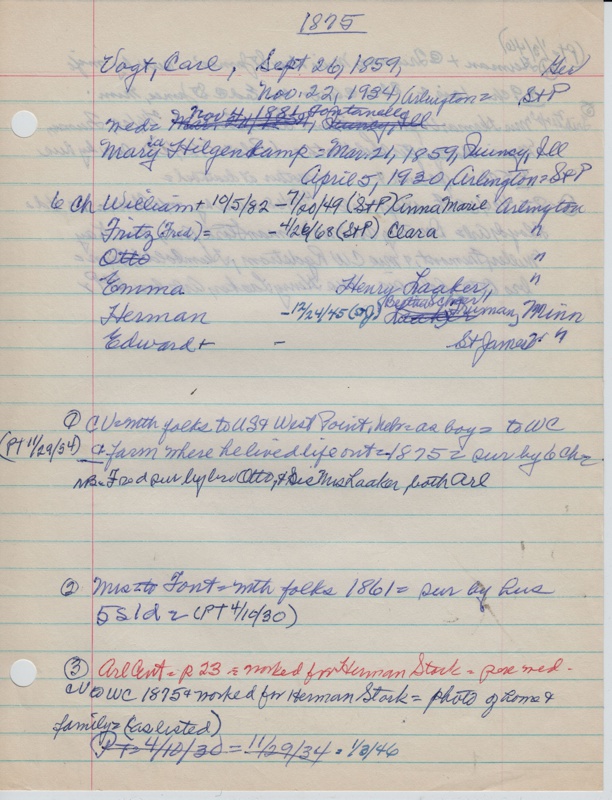 1875
Vogt, Carl, Sept 26, 1859, Ger
Nov. 22, 1934, Arlington = St P
med = Nov 4, 1881, Fontanelle Quincy, Ill
Maria Hilgenkamp = Mar. 21, 1859, Quincy, Ill
April 5, 1930, Arlington = St P
6 Ch William + 10/5/82 - 7/20/49 (St P) Anna Marie Arlington
Fritz (Fred) = - 4/26/68 (St P) Clara "
Otto "
Emma Henry Laaker, "
Herman - 12/24/45 (SJ) Truman, Minn
Edward + - St James "
① CV = mth folks to US & West Point, Neb = as boy = to WC
(PT 11/29/34) & farm where he lived life out = 1875 = sur by 6 Ch =
NB = Fred sur by bro Otto, & Sis Mrs Laaker, both Arl
② Mrs to Font = mth folks 1861 = sur by hus
5 s 1 d = (PT 4/10/30)
③ Arl Cent = p 23 = worked for Herman Stork = pox med.
CV to WC 1875 & worked for Herman Stork = photo of home &
family = (as listed)
(PT = 4/10/30 = 11/29/34 = 1/3/46